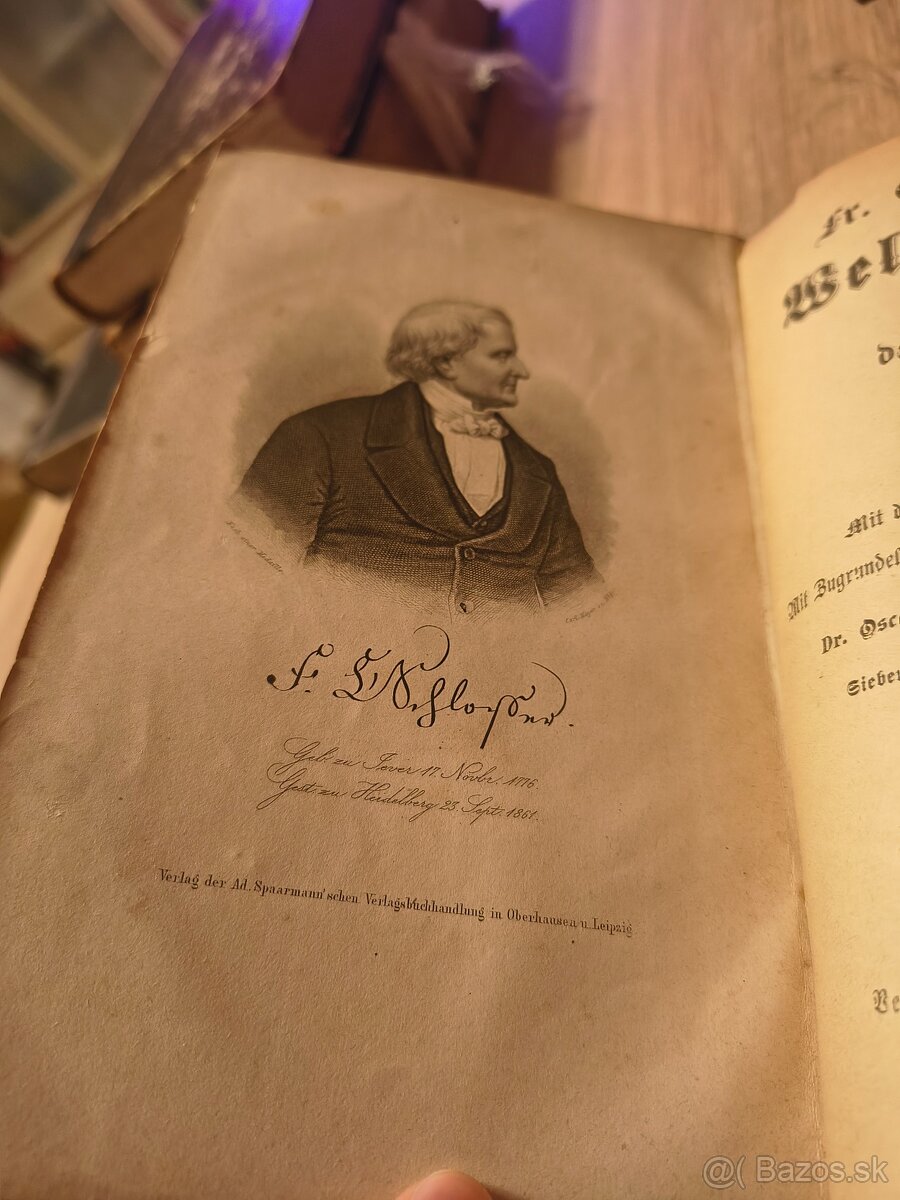 F. C. Schlosser.
Geb. zu Jever 17. Novbr. 1776.
Gest. zu Heidelberg 23. Sept. 1861.
Verlag der Ad. Spaarmann'schen Verlagsbuchhandlung in Oberhausen u. Leipzig
Fr.
Wel
Mit
Mit Zugrundel
Dr. Osc
Sieben
Ve
@( Bazos.sk